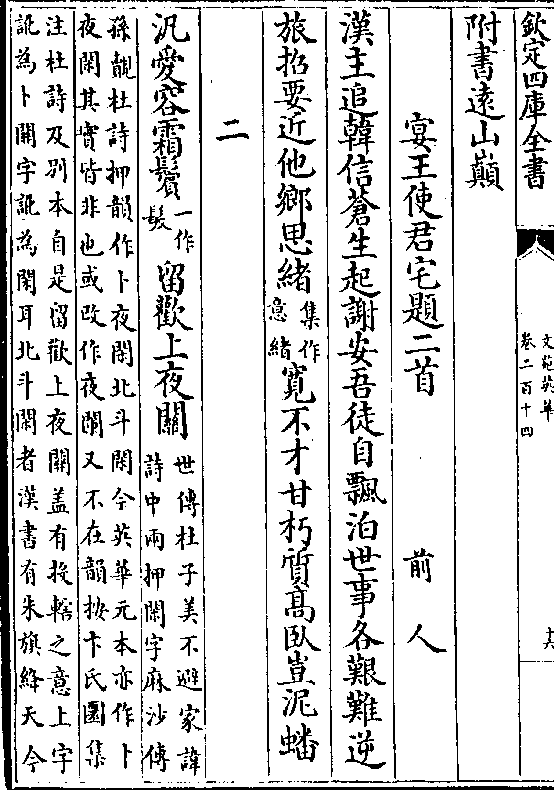 欽定四庫全書
文苑英華
卷二百十四
十六
附書遠山巔
宴王使君宅題二首 前人
漢主追韓信蒼生起謝安吾徒自飄泊世事各艱難逆
旅招要近他鄉思緒集作意緒寛不才甘朽質髙臥豈泥蟠
二
汎愛容霜鬢一作髮留歡上夜闗世傳杜子美不避家諱詩中兩押閑字麻沙傳
孫覿杜詩押韻作卜夜閑北斗閑今英華元本亦作卜
夜閑其實皆非也或改作夜闌又不在韻按卞氏圜集
注杜詩及別本自是留歡上夜闗盖有投轄之意上字
訛為卜闗字訛為閑耳北斗閑者漢書有朱旗絳天今